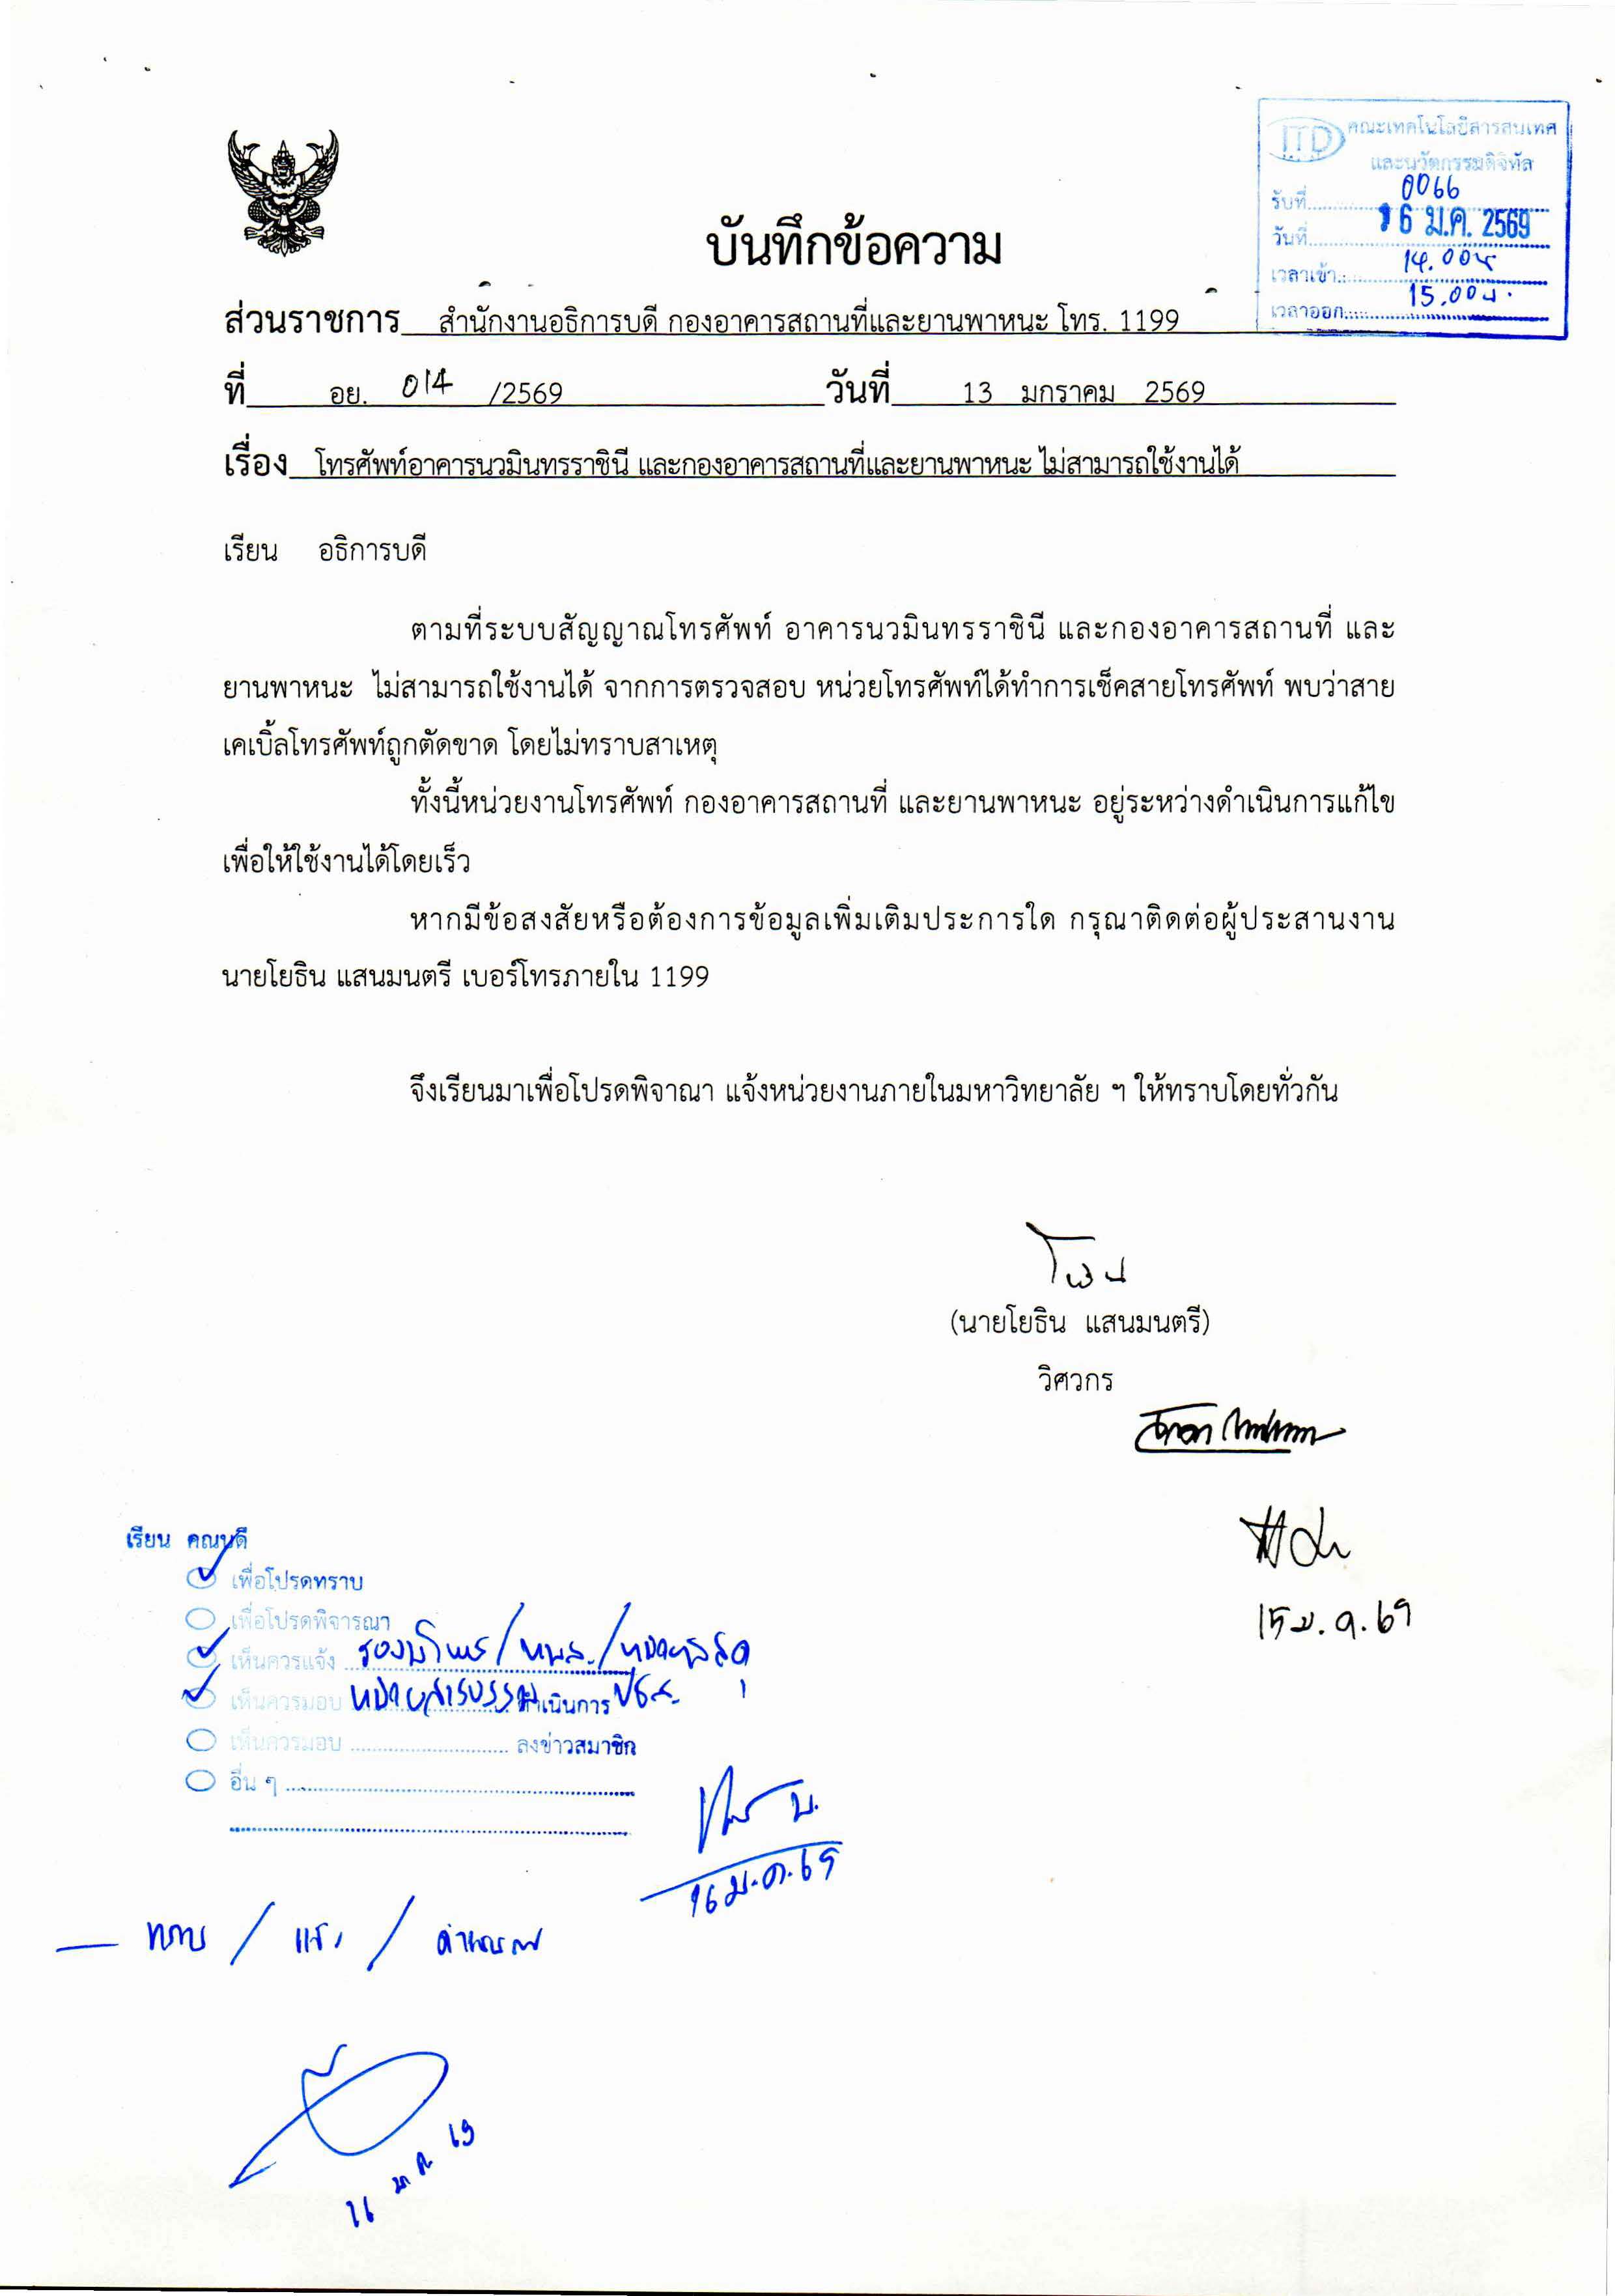 ITD คณะเทคโนโลยีสารสนเทศ
และนวัตกรรมดิจิทัล
รับที่ 0066
วันที่ 16 ม.ค. 2569
เวลาเข้า 14.00น
เวลาออก 15.00น.
บันทึกข้อความ
ส่วนราชการ สำนักงานอธิการบดี กองอาคารสถานที่และยานพาหนะ โทร. 1199
ที่ อย. 014 /2569 วันที่ 13 มกราคม 2569
เรื่อง โทรศัพท์อาคารนวมินทรราชินี และกองอาคารสถานที่และยานพาหนะ ไม่สามารถใช้งานได้
เรียน อธิการบดี
ตามที่ระบบสัญญาณโทรศัพท์ อาคารนวมินทรราชินี และกองอาคารสถานที่ และ
ยานพาหนะ ไม่สามารถใช้งานได้ จากการตรวจสอบ หน่วยโทรศัพท์ได้ทำการเช็คสายโทรศัพท์ พบว่าสาย
เคเบิ้ลโทรศัพท์ถูกตัดขาด โดยไม่ทราบสาเหตุ
ทั้งนี้หน่วยงานโทรศัพท์ กองอาคารสถานที่ และยานพาหนะ อยู่ระหว่างดำเนินการแก้ไข
เพื่อให้ใช้งานได้โดยเร็ว
หากมีข้อสงสัยหรือต้องการข้อมูลเพิ่มเติมประการใด กรุณาติดต่อผู้ประสานงาน
นายโยธิน แสนมนตรี เบอร์โทรภายใน 1199
จึงเรียนมาเพื่อโปรดพิจาณา แจ้งหน่วยงานภายในมหาวิทยาลัย ฯ ให้ทราบโดยทั่วกัน
(นายโยธิน แสนมนตรี)
วิศวกร
15 ม.ค.69
เรียน คณบดี
เพื่อโปรดทราบ
เพื่อโปรดพิจารณา
เห็นควรแจ้ง
เห็นควรมอบ หน่วยสารบรรณ ดำเนินการ
เห็นควรมอบ ลงข่าวสมาชิก
อื่น ๆ
16 ม.ค.69
ทราบ / แจ้ง /